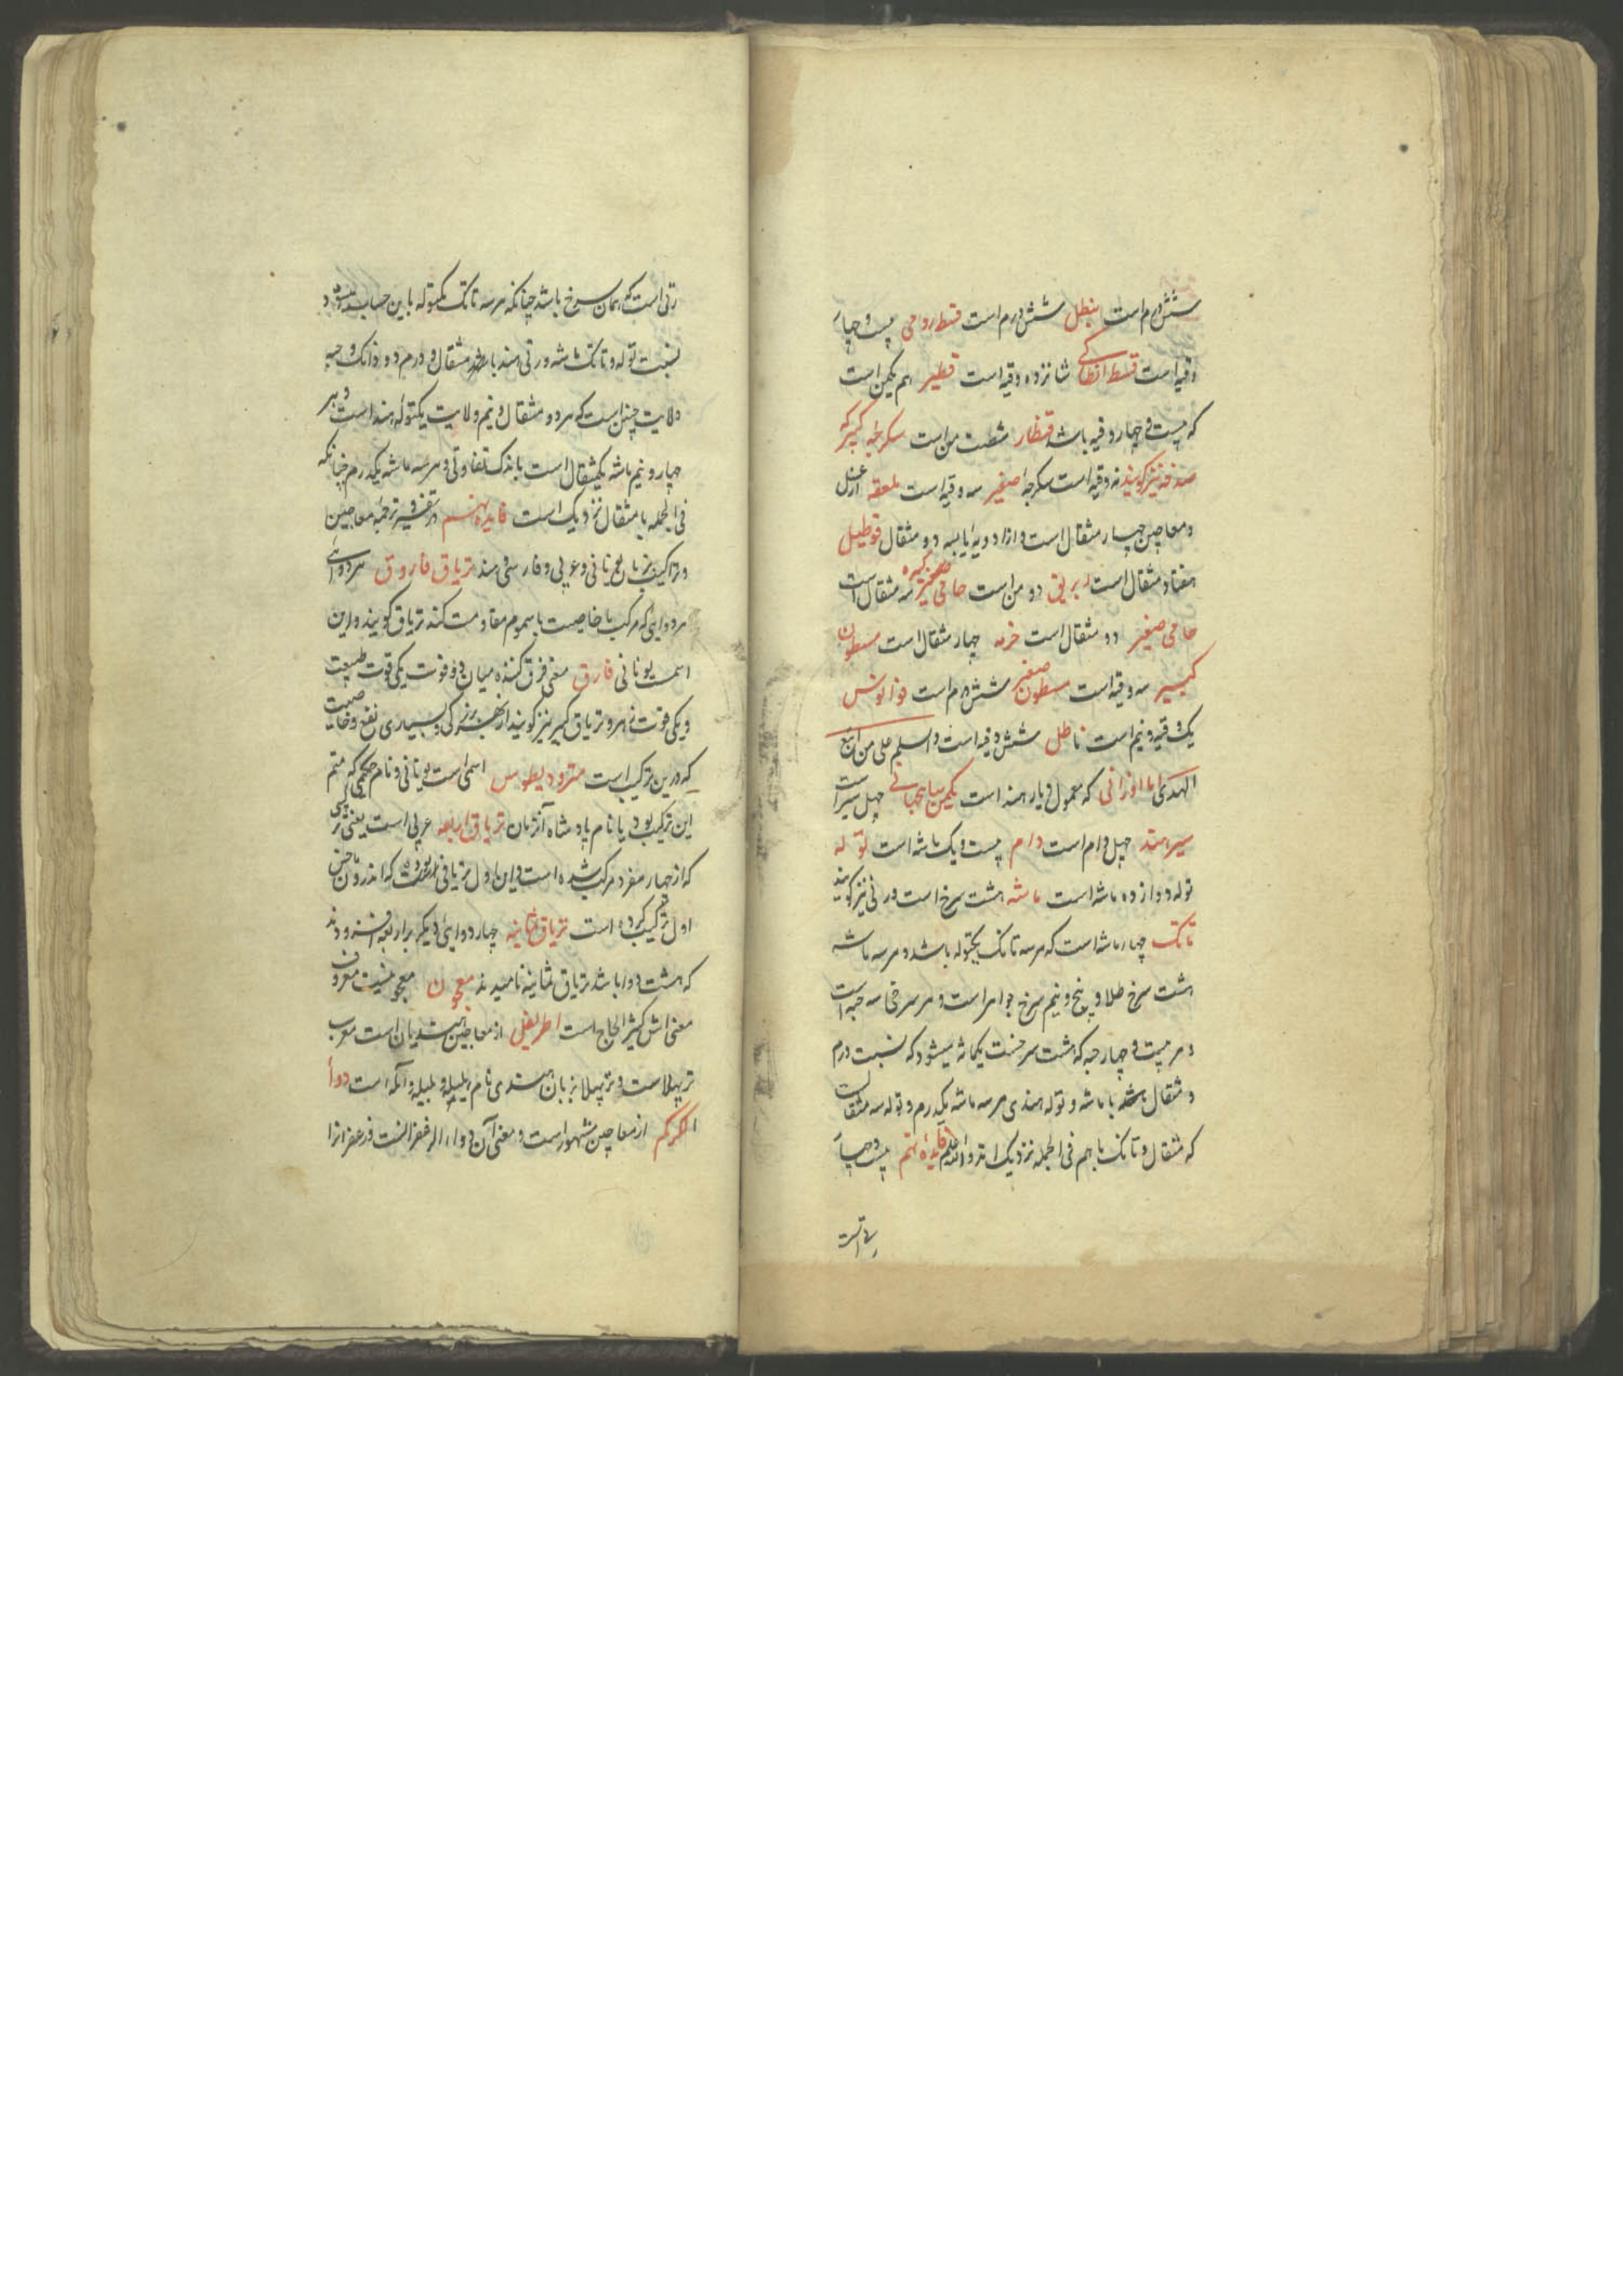 شش درم است بنطل شش درم است قسط رومی بیست و چهار
وقیه است قسط انطاکی شانزده وقیه است قطیر هم یکمن است
که بیست و چهار وقیه باشد قنطار شصت من است سکرجه کبیر که
صدفه نیز گویند نه وقیه است سکرجه صغیر سه وقیه است ملعقه از عسل
و معاجین چهار مثقال است و از ادویه یابسه دو مثقال قوطیل
هفتاد مثقال است ابریق دو من است حامی کبیره سه مثقال است
حامی صغیر دو مثقال است خرمه چهار مثقال است مسطرون
کبیر سه وقیه است مسطرون صغیر شش درم است
یک وقیه و نیم است ناطل شش وقیه است والسلام علی من اتبع
الهدی اما اوزانی که معمول دیار هند است یکمن شاهجهانی چهل سیر است
سیر هند چهل دام است دام بیست و یک ماشه است توله
توله دوازده ماشه است ماشه هشت سرخ است و رتی نیز گویند
تانک چهار ماشه است که هر سه تانک یکتوله باشد و هر سه ماشه
هشت سرخ طلا و پنج و نیم سرخ جواهر است و هر سرخی سه حبه است
و هر بیست و چهار حبه که هشت سرخست یکماشه میشود که نسبت درم
و مثقال باشد با ماشه و توله هندی هر سه ماشه یکدرم و توله سه مثقال است
که مثقال و تانک با هم فی الجمله نزدیک اند والله اعلم فایده نهم بیست و چهار
رتی است
رتی است که همان سرخ باشد چنانکه هر سه تانک یکتوله باین حساب میشود
نسبت توله و تانک و ماشه و رتی هند با مثقال و درم و دانک و حبه
ولایت چنین است که هر دو مثقال و نیم ولایت یکتوله هند است و هر
چهار و نیم ماشه یکمثقال است باندک تفاوتی و هر سه ماشه یکدرم چنانکه
فی الجمله با مثقال نزدیک است فایده نهم در تفسیر ترجمه معاجین
و تراکیب بزبان یونانی و عربی و فارسی و هند تریاق فاروق هر دوائی
هر دوایی که مرکب با خاصیت با سموم مقاومت کند تریاق گویند و این
اسمست یونانی فارق معنی فرق کننده میان دو قوت یکی قوت طبیعت
و یکی قوت زهر و تریاق کبیر نیز گویند از بزرگی و بسیاری نفع و خاصیت
که درین ترکیب است مثرودیطوس اسمی است یونانی و نام حکیمی که متمم
این ترکیب بود یا نام پادشاه آنزمان تریاق اربعه عربی است یعنی تریاقی
که از چهار مفرد مرکب شده است و این اول تریاقی بوده است که اندروماخس
اول ترکیب کرده است تریاق ثمانیه چهار دوایی دیگر بر اربعه افزودند
که هشت دوا باشد تریاق ثمانیه نامیدند معجون معجونیست معروف
معنی اش کثیر الحاج است اطریفل از معاجین هندیان است معرب
ترپهلاست و ترپهلا بزبان هندی نام هلیله و بلیله و آمله است دواء
الکرکم از معاجین مشهور است و معنی آن دواء الزعفرانست و زعفرانرا